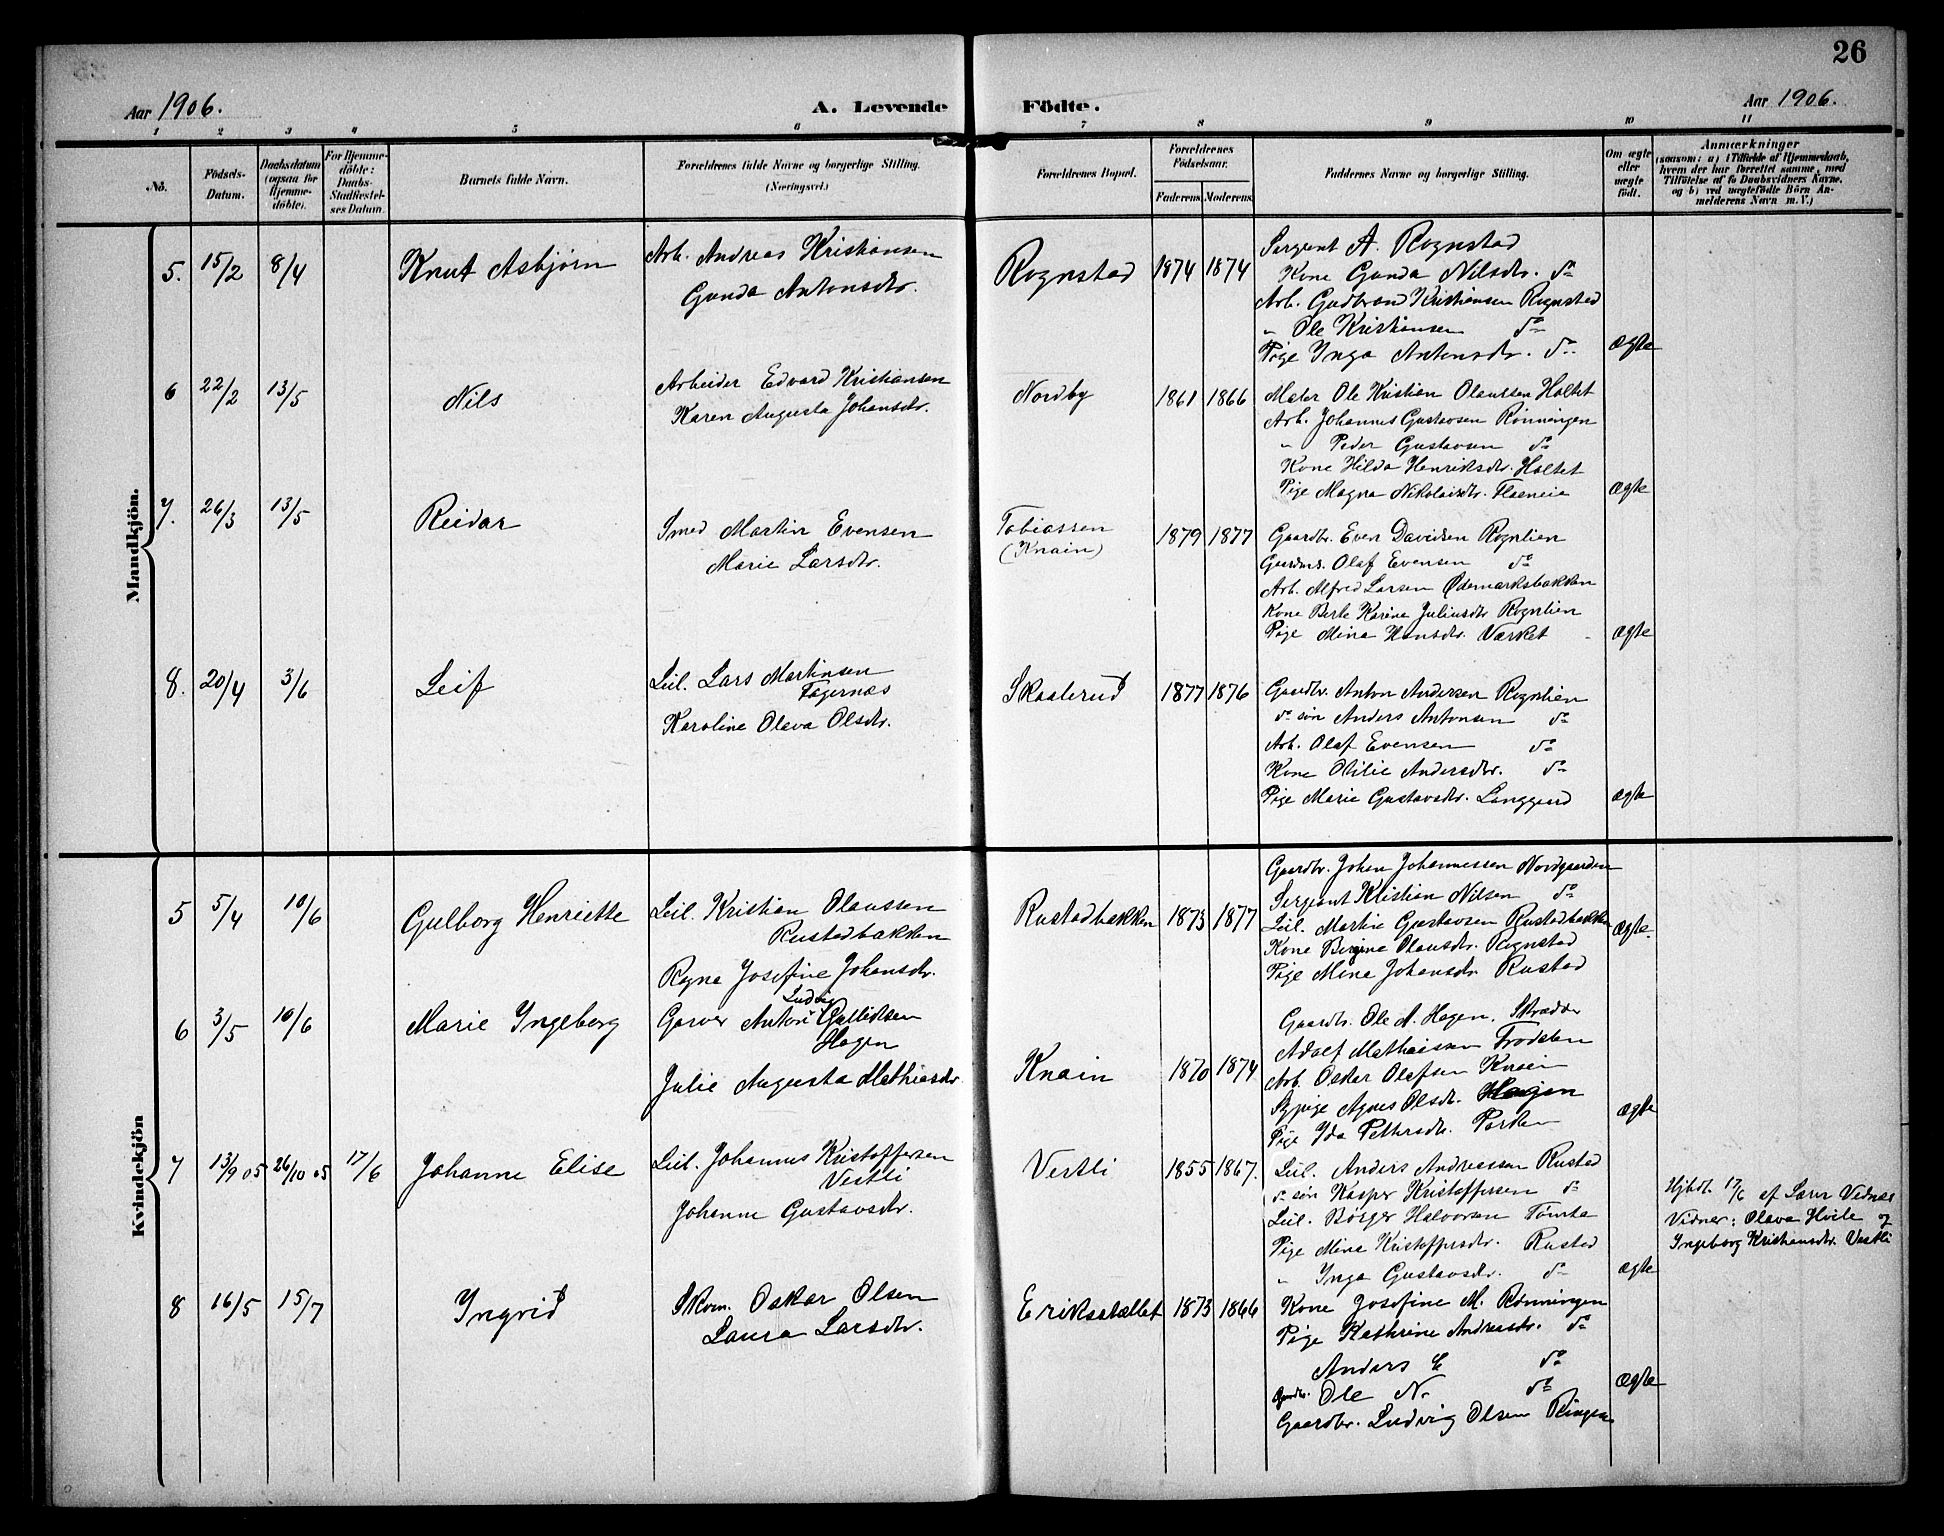 26
Aar 1906.
A. Levende Födte.
Aar 1906.
1 2 3 4 5 6 7 8 9 10 11
No.
Födsels-Datum.
Daabsdatum (ogsaa for Hjemme-döbte).
For Hjemme-döbte: Daabs-Stadfæstel-ses Datum.
Barnets fulde Navn.
Forældrenes fulde Navne og borgerlige Stilling.
(Næringsvei.)
Forældrenes Bopæl.
Forældrenes Födselsaar.
Faderens Moderens
Faddernes Navne og borgerlige Stilling.
Om ægte eller uægte födt.
Anmærkninger
(saasom: a) i Tilfælde af Hjemmedaab,
hvem der har forrettet samme, med
Tilföielse af to Daabsvidners Navne,
og b) ved uægtefödte Börn An-
melderens Navn m. V.)
Mandkjön.
5. 15/2 8/4 Knut Asbjørn
Arb. Andreas Kristiansen
Gunda Antonsdtr.
Rognstad 1874 1874
Sergent A. Rognstad
Kone Gunda Nilsdtr. do
Arb. Gudbrand Kristiansen Rognstad
" Ole Kristiansen do
Pige Inga Antonsdtr. do
ægte
6 22/2 13/5 Nils
Arbeider Edvard Kristiansen
Karen Augusta Johansdtr.
Nordby 1861 1866
Maler Ole Kristian Olaussen Holtet
Arb. Johannes Gustavsen Rønningen
" Peder Gustavsen do
Kone Hilda Henriksdtr. Holtet
Pige Magna Nikolaisdtr. Flæneie
ægte
7. 26/3 13/5 Reidar
Smed Martin Evensen
Marie Larsdtr.
Tobiassen
(Knain)
1879 1877
Gaardbr. Even Davidsen Rognlien
Gaardms. Olaf Evensen do
Arb. Alfred Larsen Ødemarksbakken
Kone Berte Karine Juliusdtr Rognlien
Pige Mina Hansdtr. Værket
ægte
8. 20/4 3/6 Leif
Leil. Lars Martinsen
Fagernæs
Karoline Olava Olsdtr.
Skaalerud 1877 1876
Gaardbr. Anton Andersen Rognlien
do søn Anders Antonsen do
Arb. Olaf Evensen do
Kone Otilie Andersdtr. do
Pige Marie Gustavsdtr. Langgaard
ægte
Kvindekjön
5 5/4 10/6 Gulborg Henriette
Leil. Kristian Olaussen
Rustadbakken
Ragna Josefine Johansdtr.
Rustadbakken 1873 1877
Gaardbr. Johan Johannessen Nordgaarden
Sergeant Kristian Nilsen do
Leil. Martin Gustavsen Rustadbakken
Kone Bergine Olausdtr. Rognstad
Pige Mina Johansdtr. Rustad
ægte.
6 3/5 10/6 Marie Ingeborg
Garver Anton Ludvig Gullidsen
Hagen
Julie Augusta Mathiasdtr.
Knain 1870 1874
Gaardbr. Ole A. Hagen. Skrædder
Adolf Mathissen Frodalen
Arb. Oskar Olafsen Knain
Sypige Agnes Olsdtr. Hagen
Pige Ida Pettersdtr. Parken
ægte
7 13/9 05 26/10 05 17/6 Johanne Elise
Leil. Johannes Kristoffersen
Vestli
Johanne Gustavsdtr.
Vestli 1855 1867.
Leil. Anders Andreassen Rustad
do søn Kasper Kristoffersen do
Leil. Börger Halvorsen Tømte
Pige Mina Kristoffersdtr. Rustad
" Inga Gustavsdtr. do
ægte
Hjbdt. 17/6 af Laur Vidnes
Vidner: Olava Hvile og
Ingeborg Kristiansdtr. Vestli
8 16/5 15/7 Ingrid
Skom. Oskar Olsen
Laura Larsdtr.
Eriksstallet 1873 1866
Kone Josefine M. Rønningen
Pige Kathrine Andreasdtr. do
Anders E do
Gaardbr. Ole N. do
Gaardbr. Ludvig Olsen Ringen
ægte